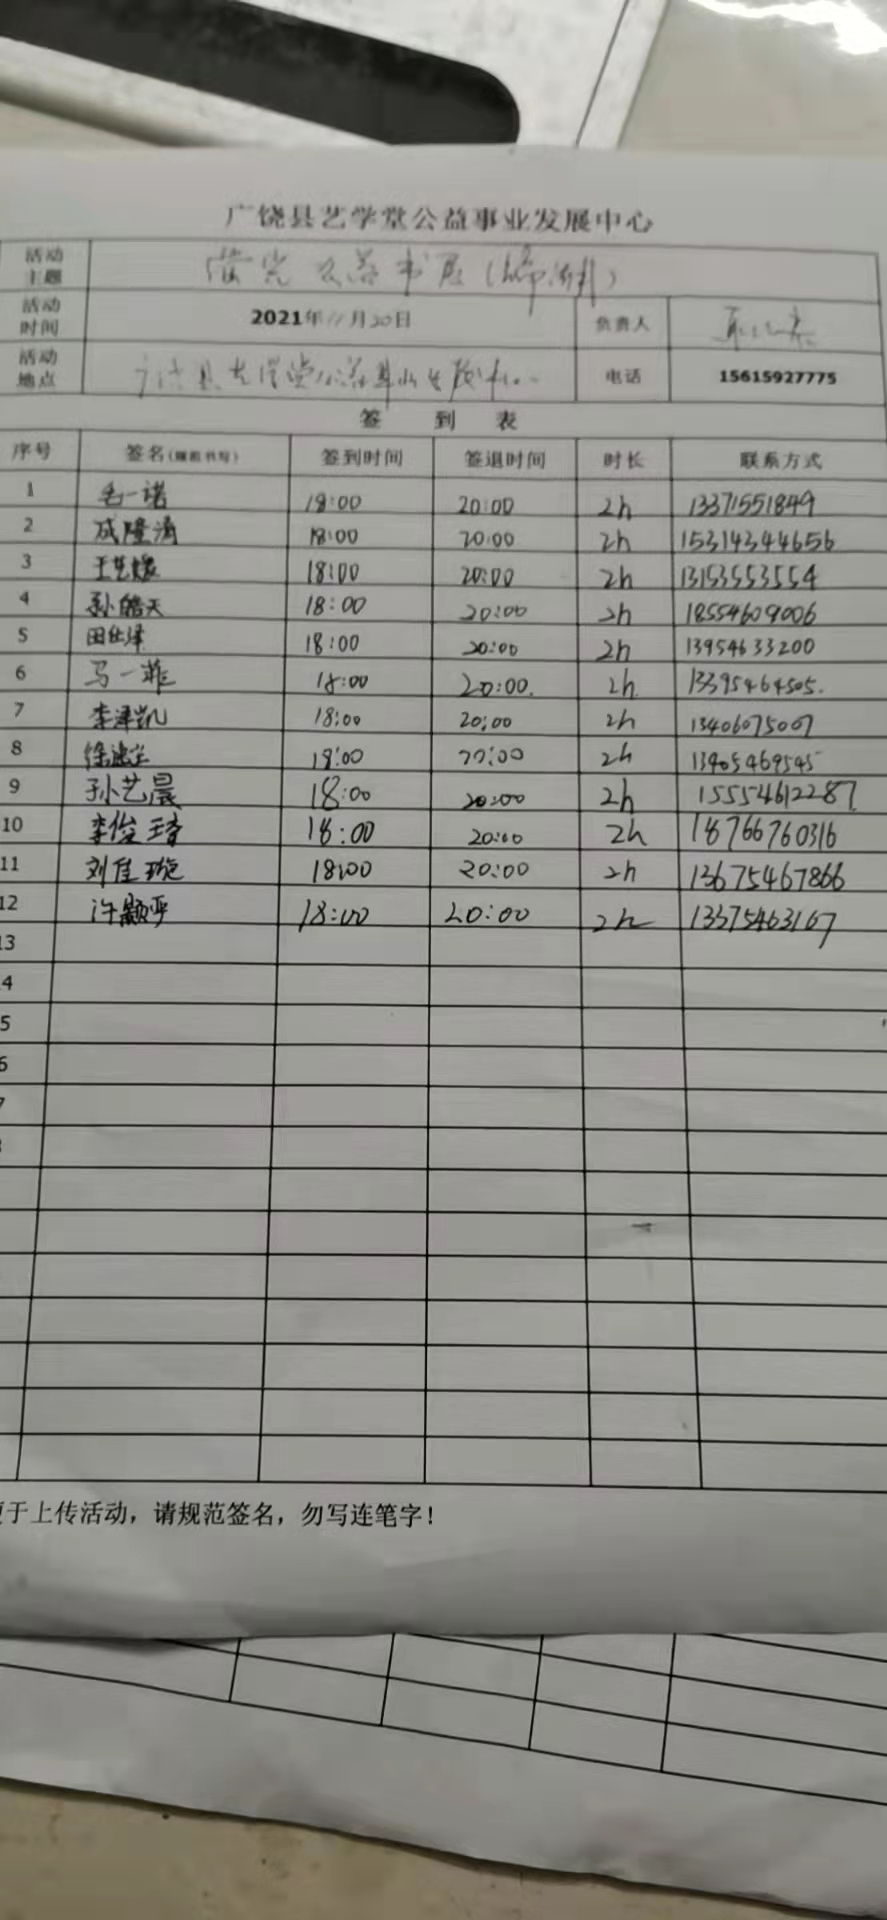 广饶县艺学堂公益事业发展中心
活动主题 萤光公益书屋
活动时间 2021年11月20日 负责人
活动地点 广饶县艺学堂公益事业发展中心 电话 15615927775
签 到 表
序号 签名 签到时间 签退时间 时长 联系方式
1 毛一诺 18:00 20:00 2h 13371551849
2 成隆涛 18:00 20:00 2h 15314344656
3 王艺媛 18:00 20:00 2h 13153553554
4 孙皓天 18:00 20:00 2h 18554609006
5 田仕泽 18:00 20:00 2h 13954633200
6 马一菲 18:00 20:00. 2h 13395464505.
7 李泽凯 18:00 20:00 2h 13406075007
8 18:00 20:00 2h 13405469545
9 孙艺晨 18:00 20:00 2h 15554612287
10 李俊 18:00 20:00 2h 18766760316
11 刘佳璇 18:00 20:00 2h 13675467866
12 许颢严 18:00 20:00 2h 13375463167
13
4
5
6
7
于上传活动，请规范签名，勿写连笔字！